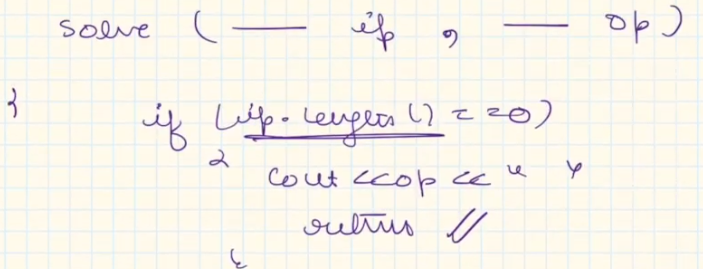 solve ( — ip , — op )
{ if (ip.length() == 0)
{ cout << op << " "
return //
}